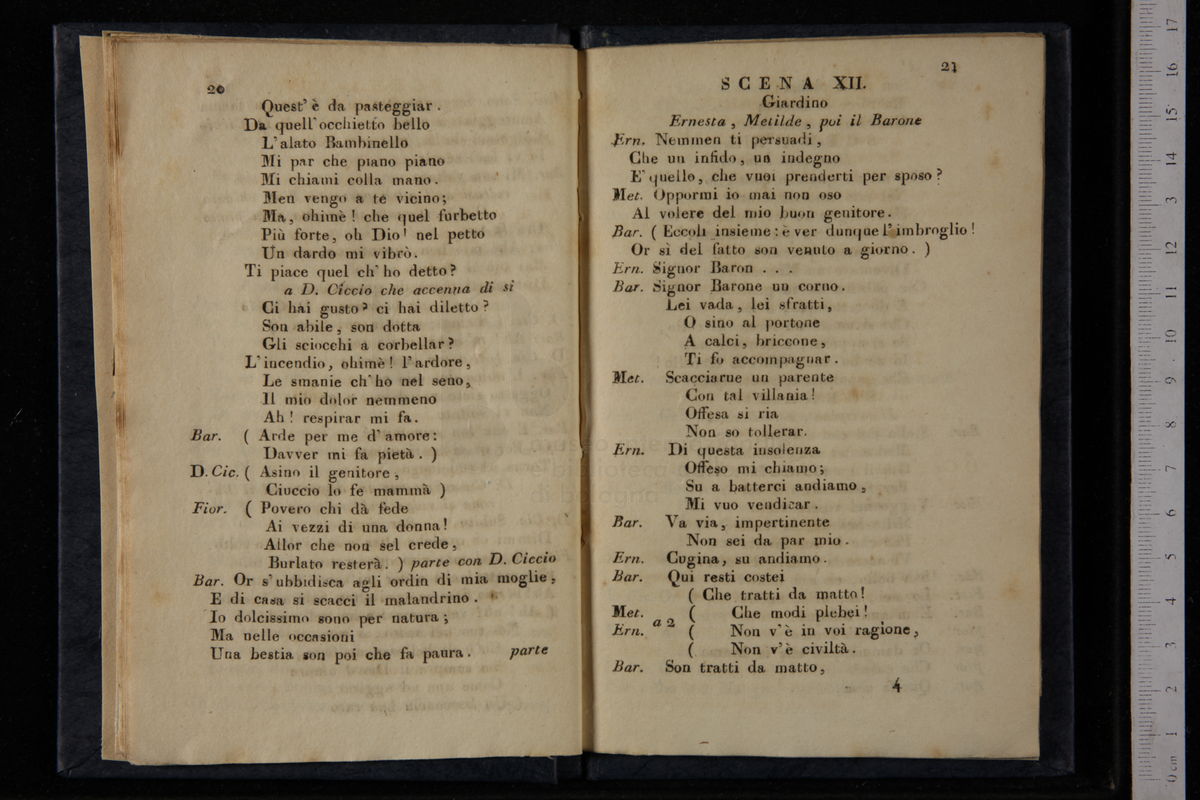 20
Quest' è da pasteggiar .
Da quell' occhietto bello
L' alato Bambinello
Mi par che piano piano
Mi chiami colla mano .
Men vengo a te vicino ;
Ma , ohimè ! che quel furbetto
Più forte , oh Dio ! nel petto
Un dardo mi vibrò .
Ti piace quel ch' ho detto ?
a D. Ciccio che accenna di sì
Ci hai gusto ? ci hai diletto ?
Son abile , son dotta
Gli sciocchi a corbellar ?
L' incendio , ohimè ! l' ardore ,
Le smanie ch' ho nel seno ,
Il mio dolor nemmeno
Ah ! respirar mi fa .
Bar. ( Arde per me d' amore :
Davver mi fa pietà . )
D. Cic. ( Asino il genitore ,
Ciuccio lo fe mammà )
Fior. ( Povero chi dà fede
Ai vezzi di una donna !
Allor che non sel crede ,
Burlato resterà . ) parte con D. Ciccio
Bar. Or s' ubbidisca agli ordin di mia moglie ,
E di casa si scacci il malandrino .
Io dolcissimo sono per natura ;
Ma nelle occasioni
Una bestia son poi che fa paura . parte
21
SCENA XII.
Giardino
Ernesta , Metilde , poi il Barone
Ern. Nemmen ti persuadi ,
Che un infido , un indegno
E' quello , che vuoi prenderti per sposo ?
Met. Oppormi io mai non oso
Al volere del mio buon genitore .
Bar. ( Eccoli insieme : è ver dunque l' imbroglio !
Or sì del fatto son venuto a giorno . )
Ern. Signor Baron . . .
Bar. Signor Barone un corno .
Lei vada , lei sfratti ,
O sino al portone
A calci , briccone ,
Ti fo accompagnar .
Met. Scacciarne un parente
Con tal villania !
Offesa si ria
Non so tollerar .
Ern. Di questa insolenza
Offeso mi chiamo ;
Su a batterci andiamo ,
Mi vuo vendicar .
Bar. Va via , impertinente
Non sei da par mio .
Ern. Cugina , su andiamo .
Bar. Qui resti costei
( Che tratti da matto !
Met. ( Che modi plebei !
Ern. a 2 ( Non v' è in voi ragione ,
( Non v' è civiltà .
Bar. Son tratti da matto ,
4